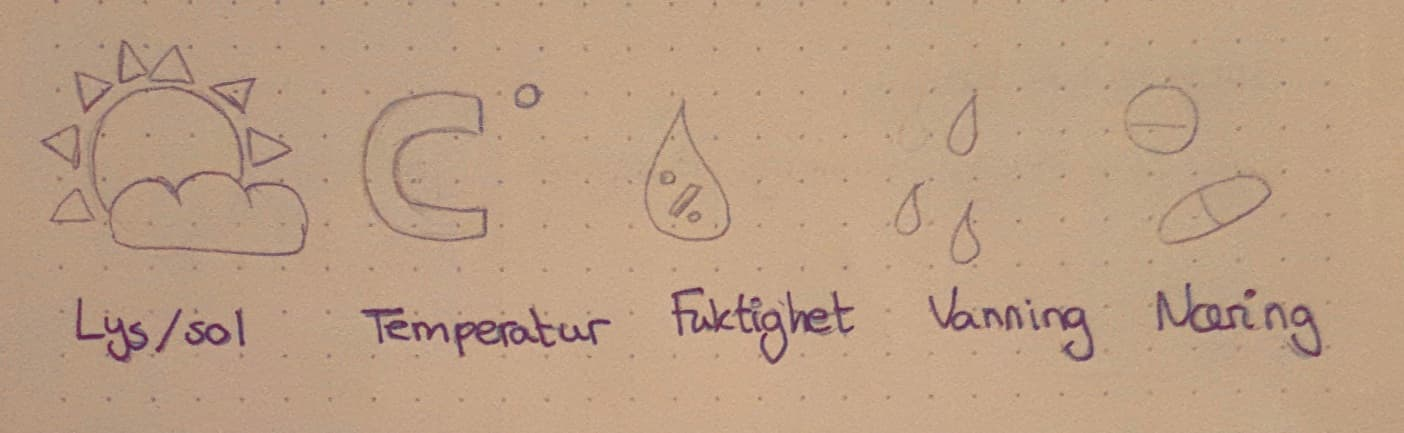 C°
%
Lys/sol Temperatur Fuktighet Vanning Næring